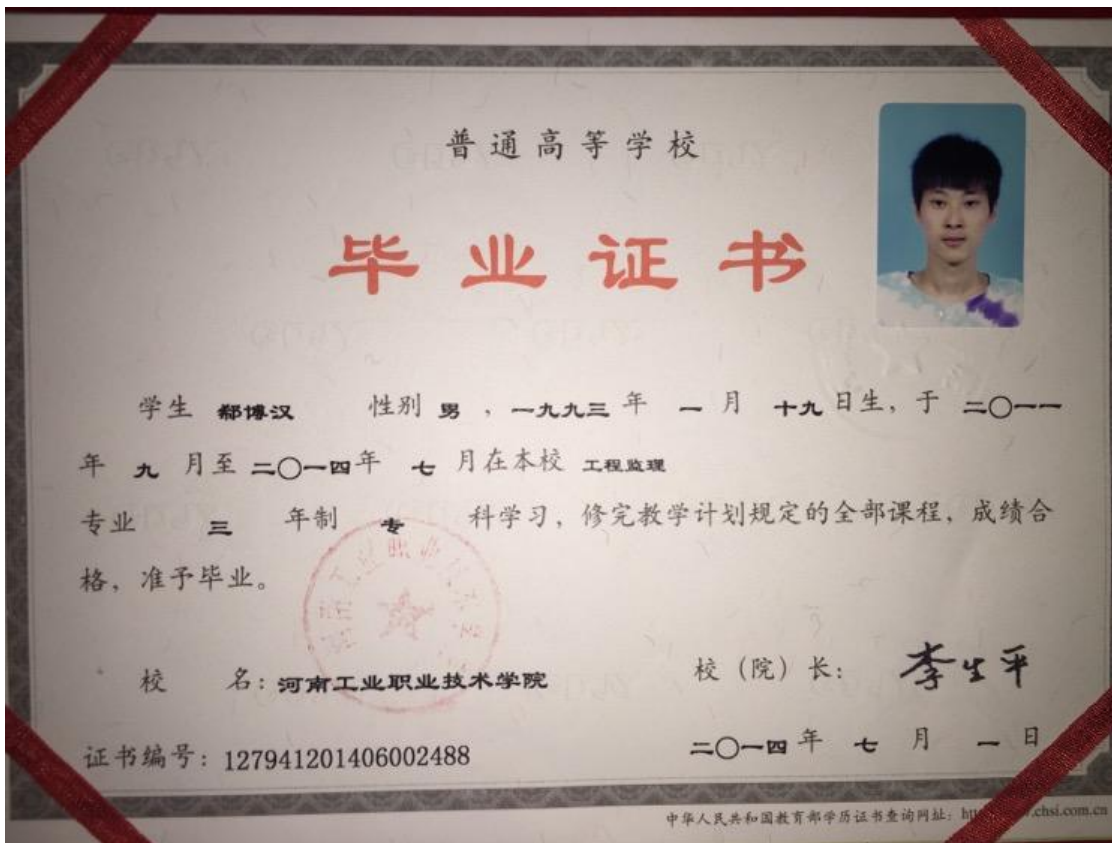 普通高等学校
毕业证书
学生 郗博汉 性别 男 ，一九九三 年 一 月 十九 日生，于 二〇一一
年 九 月至 二〇一四 年 七 月在本校 工程监理
专业 三 年制 专 科学习，修完教学计划规定的全部课程，成绩合
格，准予毕业。
河南工业职业技术学院
校 名：河南工业职业技术学院 校（院）长： 李生平
证书编号：127941201406002488 二〇一四 年 七 月 一 日
中华人民共和国教育部学历证书查询网址：.chsi.com.cn